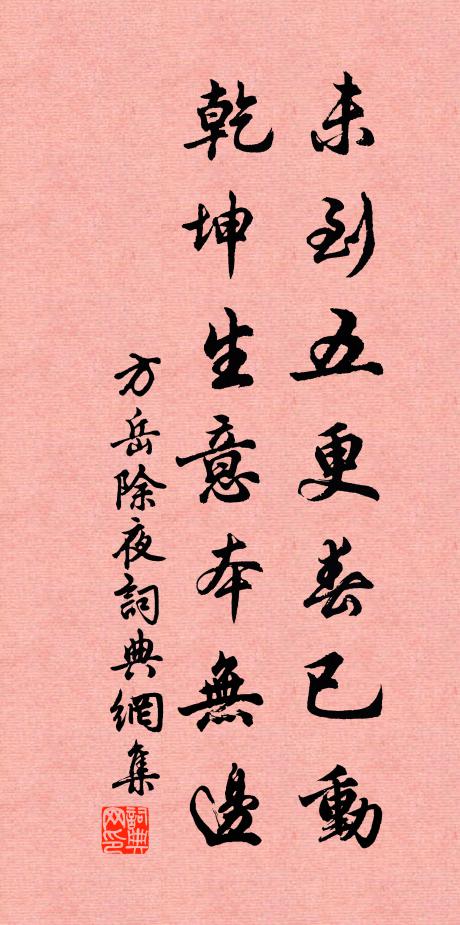 未到五更春已動
乾坤生意本無邊
方岳除夜詞典網集
詞典网印